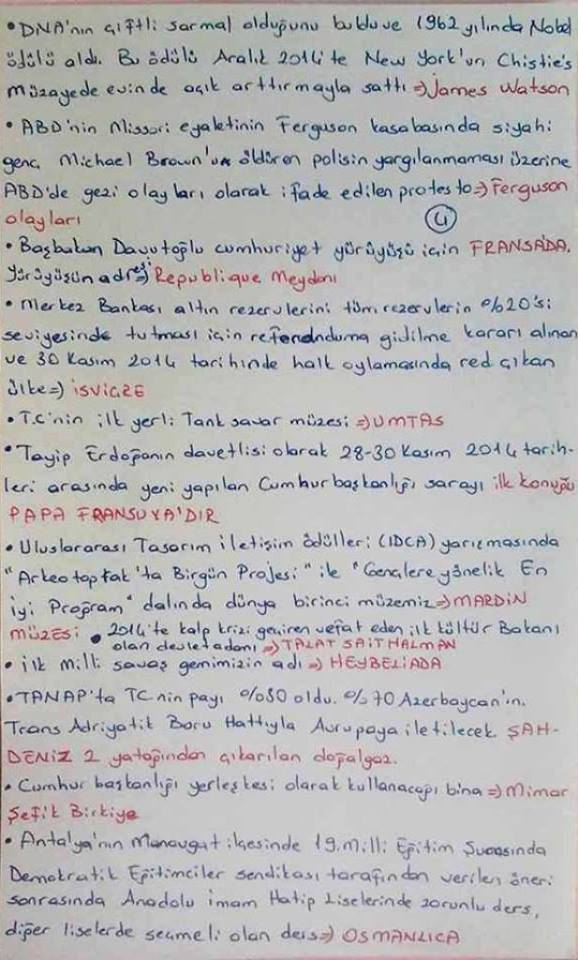 • DNA'nın çiftli sarmal olduğunu buldu ve 1962 yılında Nobel
ödülü aldı. Bu ödülü Aralık 2014'te New York'un Chistie's
müzayede evinde açık arttırmayla sattı ⇒ James Watson
• ABD'nin Missori eyaletinin Ferguson kasabasında siyahi
genç Michael Brown'un öldüren polisin yargılanmaması üzerine
ABD'de gezi olayları olarak ifade edilen protesto ⇒ Ferguson
olayları
4
• Başbakan Davutoğlu cumhuriyet yürüyüşü için FRANSADA.
Yürüyüşün adresi ⇒ Republique Meydanı
• Merkez Bankası altın rezervlerini tüm rezervlerin %20'si
seviyesinde tutması için referanduma gidilme kararı alınan
ve 30 Kasım 2014 tarihinde halk oylamasında red çıkan
ülke ⇒ İSVİÇRE
• T.C'nin ilk yerli Tank savar müzesi ⇒ UMTAS
• Tayip Erdoğanın davetlisi olarak 28-30 Kasım 2014 tarih-
leri arasında yeni yapılan Cumhurbaşkanlığı sarayı ilk konuğu
PAPA FRANSUVA'DIR
• Uluslararası Tasarım iletişim ödülleri (IDCA) yarışmasında
"Arkeotoprak'ta Birgün Projesi" ile "Gençlere yönelik En
iyi Program" dalında dünya birinci müzemiz ⇒ MARDİN
MÜZESi • 2014'te kalp krizi geçiren vefat eden ilk kültür Bakanı
olan devlet adamı ⇒ TALAT SAİT HALMAN
• ilk milli savaş gemimizin adı ⇒ HEYBELİADA
• TANAP'ta TC nin payı %80 oldu. %70 Azerbaycan'ın.
Trans Adriyatik Boru Hattıyla Avrupaya iletilecek. ŞAH-
DENİZ 2 yatağından çıkarılan doğalgaz.
• Cumhur başkanlığı yerleşkesi olarak kullanacağı bina ⇒ Mimar
Şefik Birkiye
• Antalya'nın Manavgat ilçesinde 19. Milli Eğitim Şurasında
Demokratik Eğitimciler sendikası tarafından verilen öneri
sonrasında Anadolu imam Hatip Liselerinde zorunlu ders,
diğer liselerde seçmeli olan ders ⇒ OSMANLICA